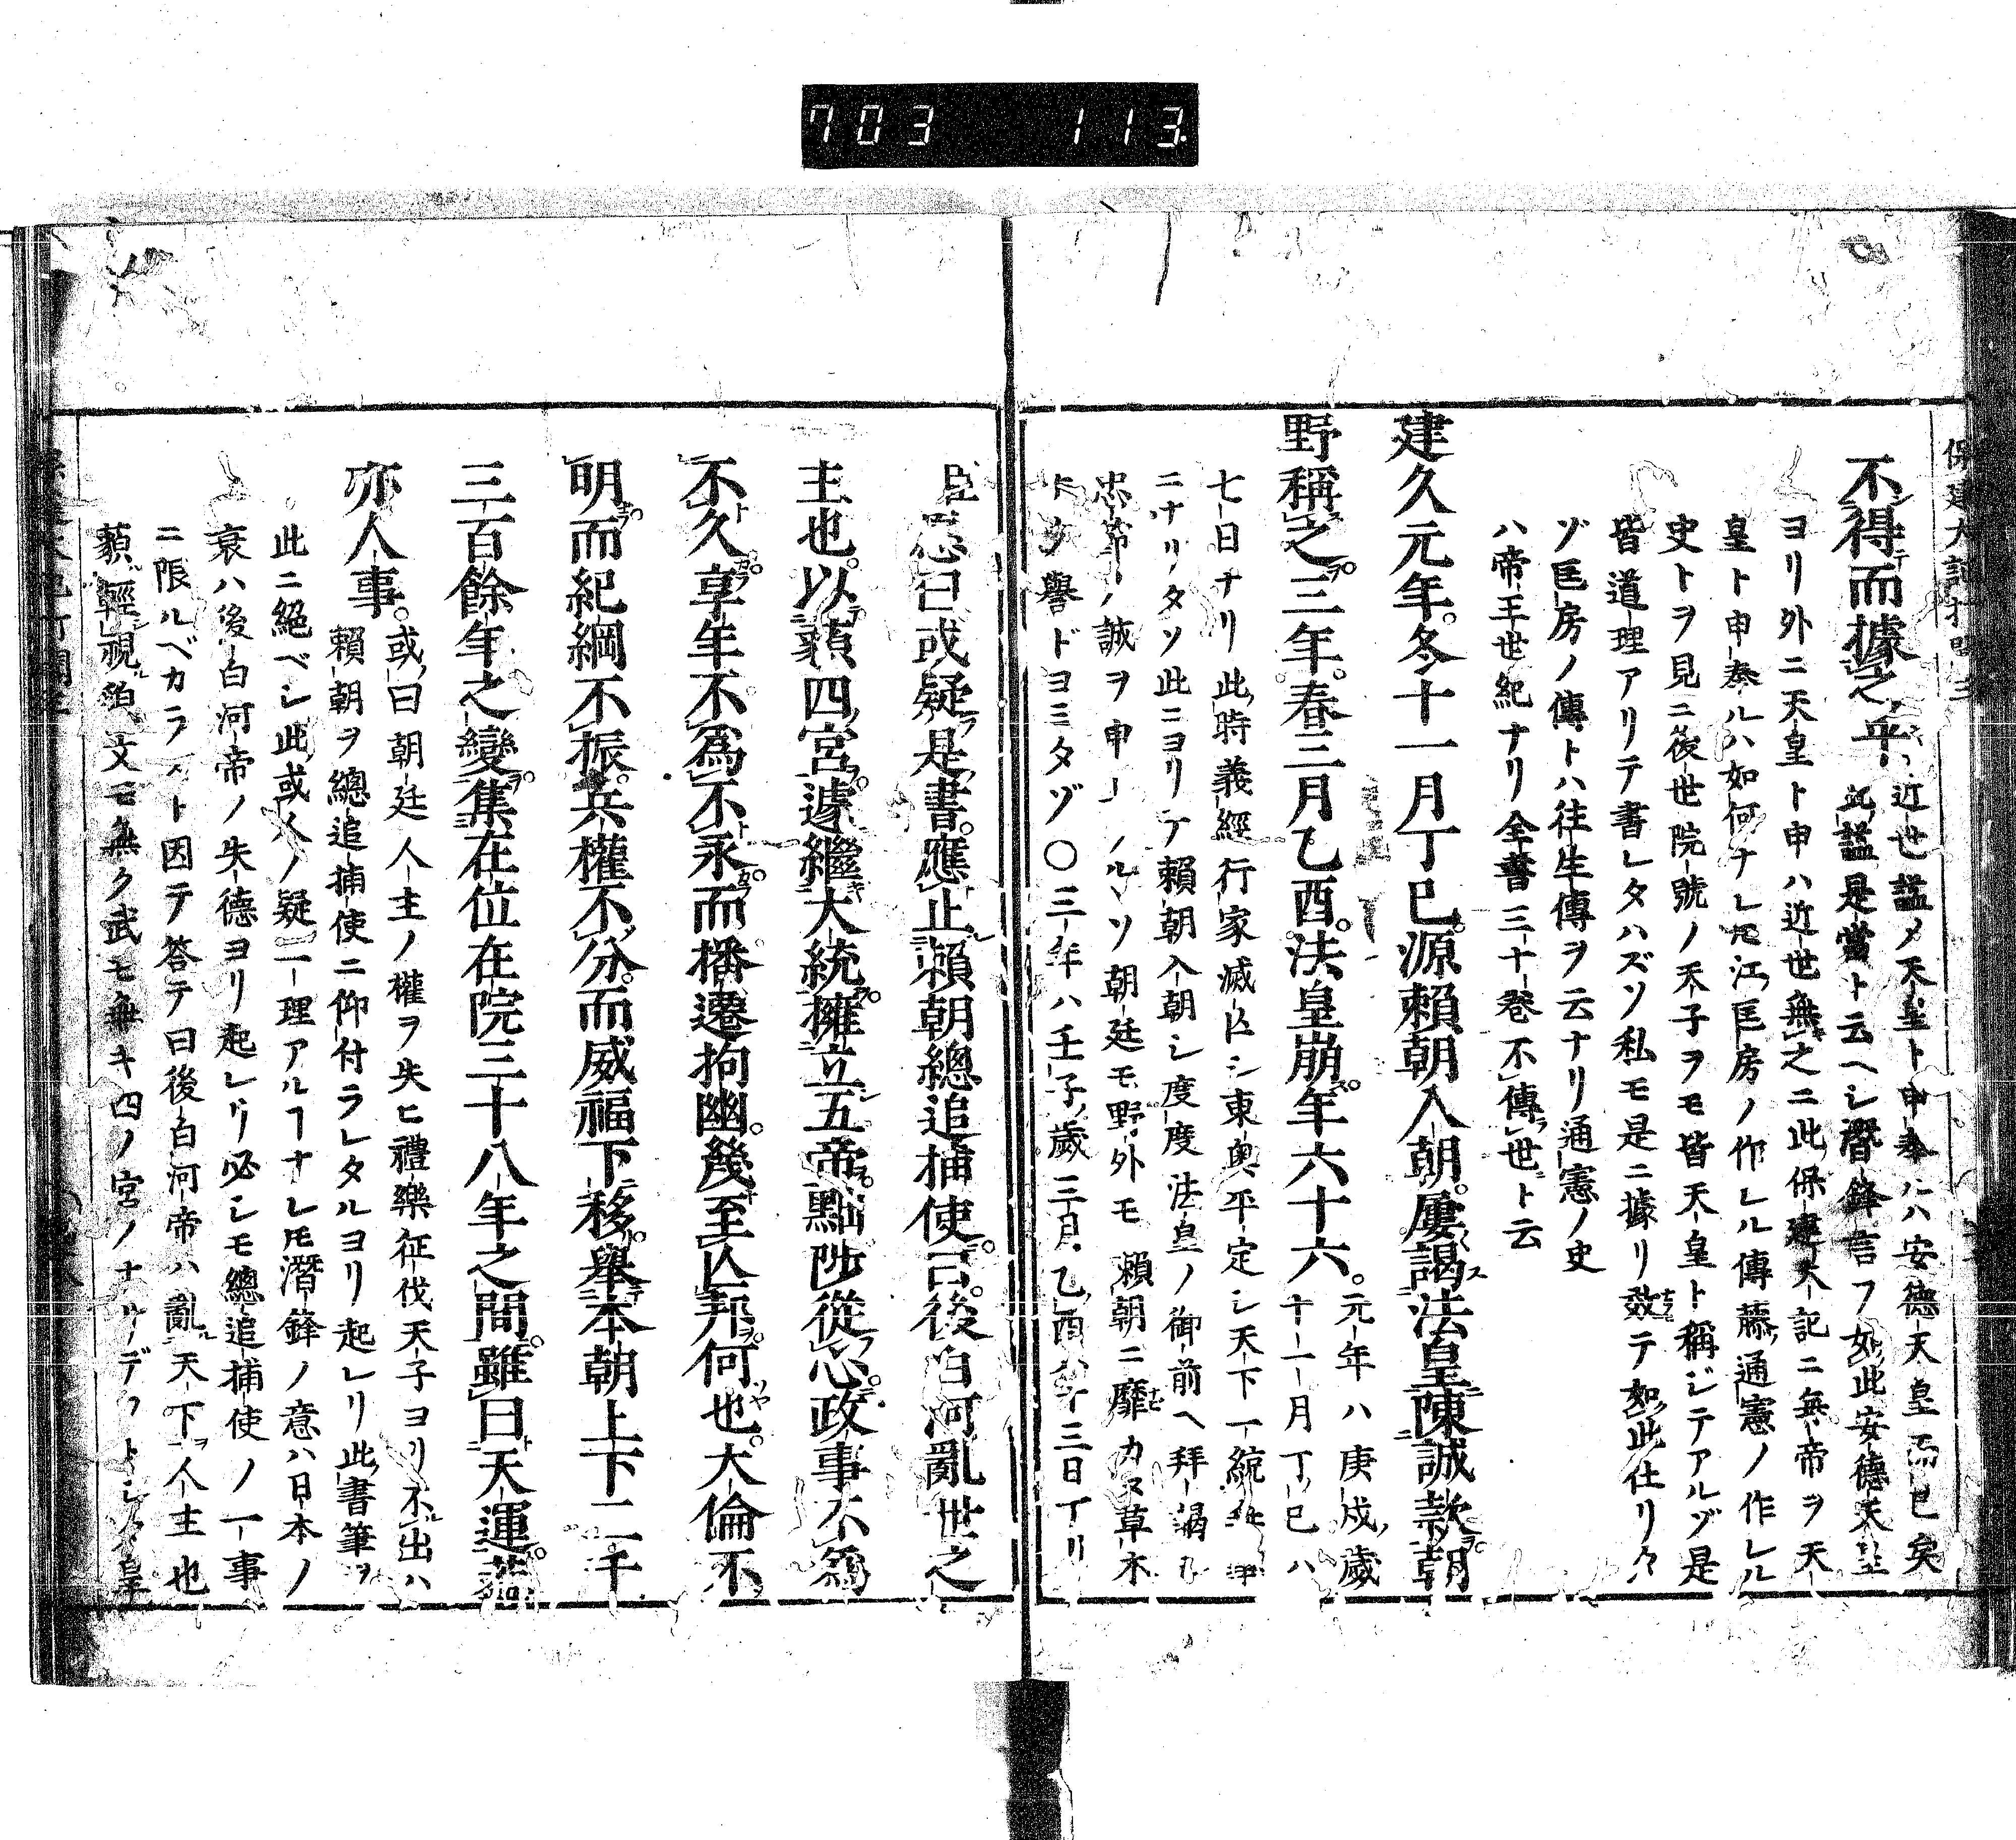 703 113
保建大記打聞 三
不得而據之乎
近世謚〆天皇ト申奉ハ安德天皇而已矣
此謚是當ト云ヘシ潛鋒言フ如此安德天皇
ヨリ外ニ天皇ト申ハ近世無之ニ此保建大記ニ無帝ヲ天
皇ト申奉ルハ如何ナレ𪜈江匡房ノ作レル傳藤通憲ノ作レル
史トヲ見ニ後世院號ノ天子ヲモ皆天皇ト稱ジテアルゾ是
皆道理アリテ書レタハズソ私モ是ニ據リ效テ如此仕リタ
ゾ匡房ノ傳トハ往生傳ヲ云ナリ通憲ノ史
ハ帝王世紀ナリ全書三十卷不傳世ト云
建久元年冬十一月丁巳源賴朝入朝屢謁法皇陳誠款朝
野稱之三年春三月乙酉法皇崩年六十六
元年ハ庚戌歲
十一月丁巳ハ
七日ナリ此時義經行家滅亡シ東奥平定シ天下一統
ニナリタソ此ニヨリテ賴朝入朝シ度度法皇ノ御前ヘ拜謁
忠節ノ誠ヲ申 ソ朝廷モ野外モ賴朝ニ靡カヌ草木
譽ドヨミタゾ○三年ハ壬子歲三月乙酉ハ十三日ナリ
臣愿曰或疑是書應止賴朝總追捕使已後白河亂世之
主也以藐四宮遽繼大統擁立五帝黜陟從心政事不爲
不久享年不爲不永而播遷拘幽幾至亾邦何也大倫不
明而紀綱不振兵權不分而威福下移舉本朝上下二千
三百餘年之變集在位在院三十八年之間雖曰天運蓋
亦人事
或曰朝廷人主ノ權ヲ失ヒ禮樂征伐天子ヨリ不出ハ
賴朝ヲ總追捕使ニ仰付ラレタルヨリ起レリ此書筆ヲ
此ニ絕ベシ此或人ノ疑一理アルヿナレ𪜈潛鋒ノ意ハ日本ノ
衰ハ後白河帝ノ失德ヨリ起レリ必シモ總追捕使ノ一事
ニ限ルベカラスト因テ答テ曰後白河帝ハ亂天下ヲ人主也
藐輕視 文モ無ク武モ無キ四ノ宮ノナルーデ